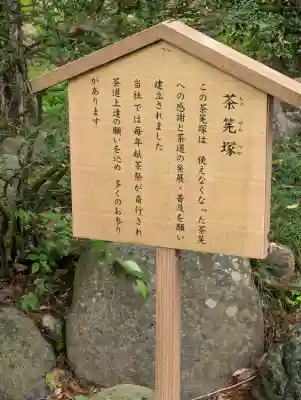 茶筅塚
ちゃ せん づか
この茶筅塚は 使えなくなった茶筅
への感謝と茶道の発展・普及を願い
建立されました
当社では毎年献茶祭が斎行され
茶道上達の願いを込め 多くのお参り
があります